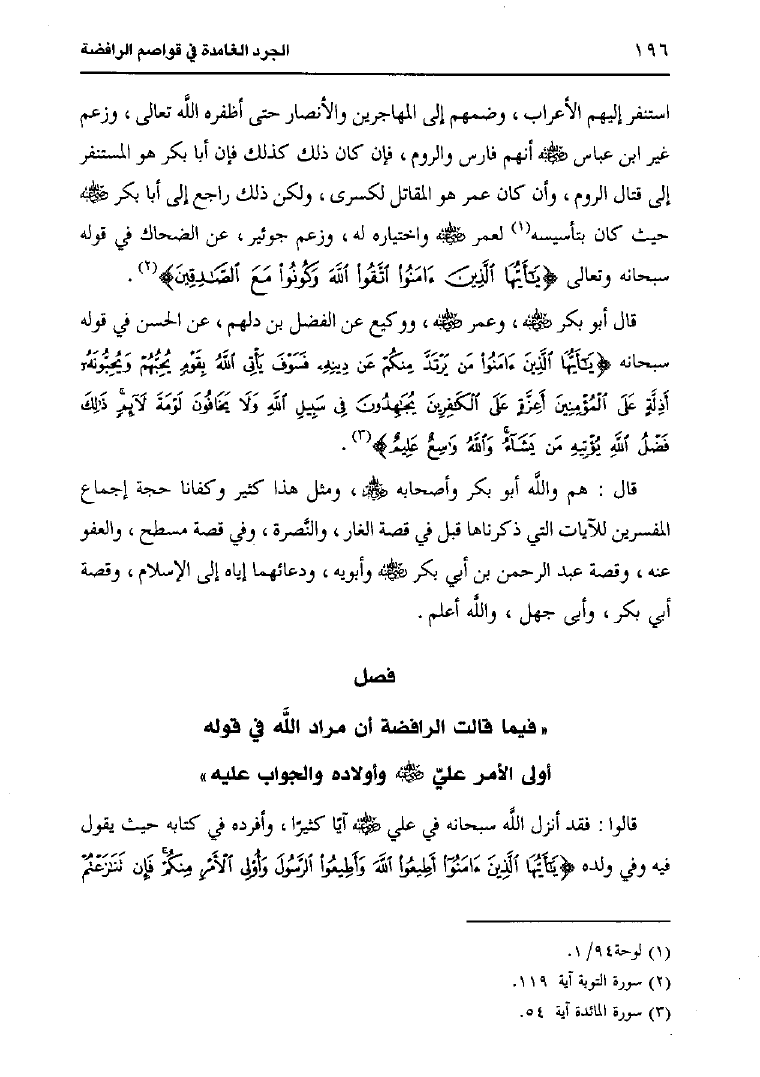 ١٩٦ الجرد الغامدة في قواصم الرافضة
استنفر إليهم الأعراب ، وضمهم إلى المهاجرين والأنصار حتى أظفره اللَّه تعالى ، وزعم
غير ابن عباس ﵁ أنهم فارس والروم ، فإن كان ذلك كذلك فإن أبا بكر هو المستنفر
إلى قتال الروم ، وأن كان عمر هو المقاتل لكسرى ، ولكن ذلك راجع إلى أبا بكر ﵁
حيث كان بتأسيسه(١) لعمر ﵁ واختياره له ، وزعم جوئير ، عن الضحاك في قوله
سبحانه وتعالى ﴿يَٰٓأَيُّهَا ٱلَّذِينَ ءَامَنُوا۟ ٱتَّقُوا۟ ٱللَّهَ وَكُونُوا۟ مَعَ ٱلصَّٰدِقِينَ﴾(٢) .
قال أبو بكر ﵁ ، وعمر ﵁ ، ووكيع عن الفضل بن دلهم ، عن الحسن في قوله
سبحانه ﴿يَٰٓأَيُّهَا ٱلَّذِينَ ءَامَنُوا۟ مَن يَرْتَدَّ مِنكُمْ عَن دِينِهِۦ فَسَوْفَ يَأْتِى ٱللَّهُ بِقَوْمٍ يُحِبُّهُمْ وَيُحِبُّونَهُۥٓ
أَذِلَّةٍ عَلَى ٱلْمُؤْمِنِينَ أَعِزَّةٍ عَلَى ٱلْكَٰفِرِينَ يُجَٰهِدُونَ فِى سَبِيلِ ٱللَّهِ وَلَا يَخَافُونَ لَوْمَةَ لَآئِمٍ ۚ ذَٰلِكَ
فَضْلُ ٱللَّهِ يُؤْتِيهِ مَن يَشَآءُ ۚ وَٱللَّهُ وَٰسِعٌ عَلِيمٌ﴾(٣) .
قال : هم واللَّه أبو بكر وأصحابه ﵃ ، ومثل هذا كثير وكفانا حجة إجماع
المفسرين للآيات التي ذكرناها قبل في قصة الغار ، والنُّصرة ، وفي قصة مسطح ، والعفو
عنه ، وقصة عبد الرحمن بن أبي بكر ﵁ وأبويه ، ودعائهما إياه إلى الإسلام ، وقصة
أبي بكر ، وأبى جهل ، واللَّه أعلم .
فصل
« فيما قالت الرافضة أن مراد اللَّه في قوله
أولى الأمر عليّ ﵁ وأولاده والجواب عليه »
قالوا : فقد أنزل اللَّه سبحانه في علي ﵁ آيًا كثيرًا ، وأفرده في كتابه حيث يقول
فيه وفي ولده ﴿يَٰٓأَيُّهَا ٱلَّذِينَ ءَامَنُوٓا۟ أَطِيعُوا۟ ٱللَّهَ وَأَطِيعُوا۟ ٱلرَّسُولَ وَأُو۟لِى ٱلْأَمْرِ مِنكُمْ ۖ فَإِن تَنَٰزَعْتُمْ
(١) لوحة٩٤/ ١.
(٢) سورة التوبة آية ١١٩.
(٣) سورة المائدة آية ٥٤.